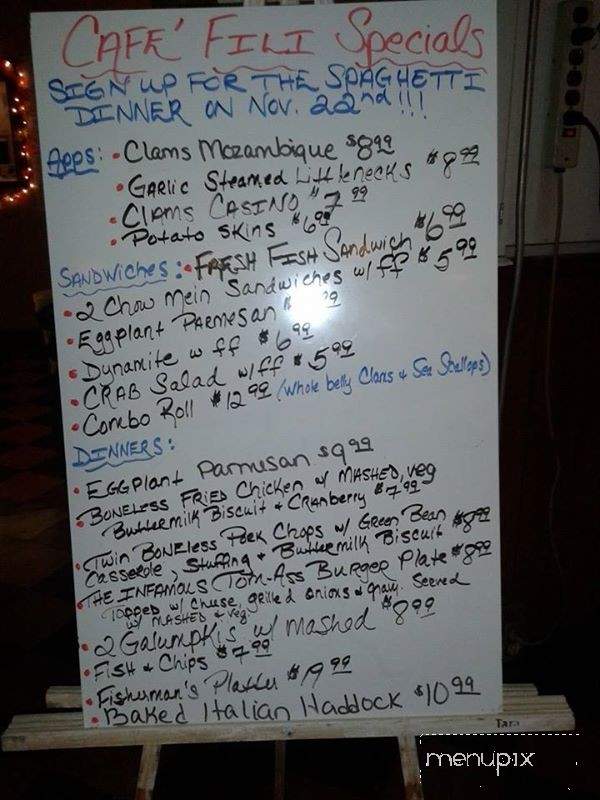 CAFE' FILI Specials
SIGN UP FOR THE SPAGHETTI
DINNER ON NOV. 22nd !!!
Apps: • Clams Mozambique $8.99
• Garlic Steamed Littlenecks $8.99
• Clams Casino $7.99
• Potato Skins $6.99
Sandwiches: • Fresh Fish Sandwich $6.99
• 2 Chow Mein Sandwiches w/ff $5.99
• Eggplant Parmesan
• Dynamite w ff $6.99
• CRAB Salad w/ff $5.99
• Combo Roll $12.99 (whole belly Clams & Sea Scallops)
DINNERS:
• EGGPlant Parmesan $9.99
• BONELESS FRIED Chicken w/ MASHED, veg
Buttermilk Biscuit & Cranberry $7.99
• Twin BONEless Pork Chops w/ Green Bean
Casserole, Stuffing & Buttermilk Biscuit $8.99
• THE INFAMOUS Tom-Ass Burger Plate $8.99
Topped w/ cheese, grilled onions & gravy. Served
w/ MASHED & veg.
• 2 Galumpki's w/ mashed $8.99
• Fish & Chips $7.99
• Fisherman's Platter $19.99
• Baked Italian Haddock $10.99
Tara
menupix